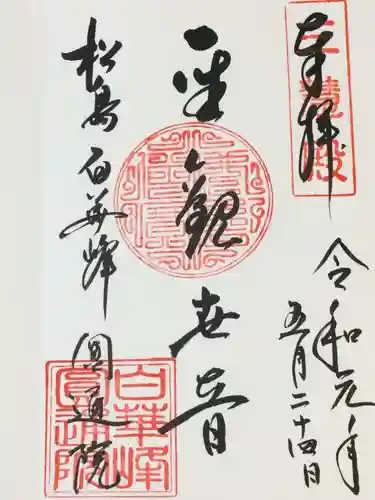 奉拝
三慧殿
令和元年
五月二十四日
聖観世音
松島 白華峰 圓通院
白華峰
圓通院